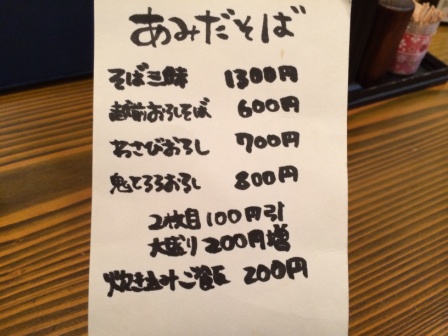 あみだそば
そば三昧 1300円
越前おろしそば 600円
わさびおろし 700円
鬼とろろおろし 800円
2枚目100円引
大盛り200円増
炊き込みご飯 200円